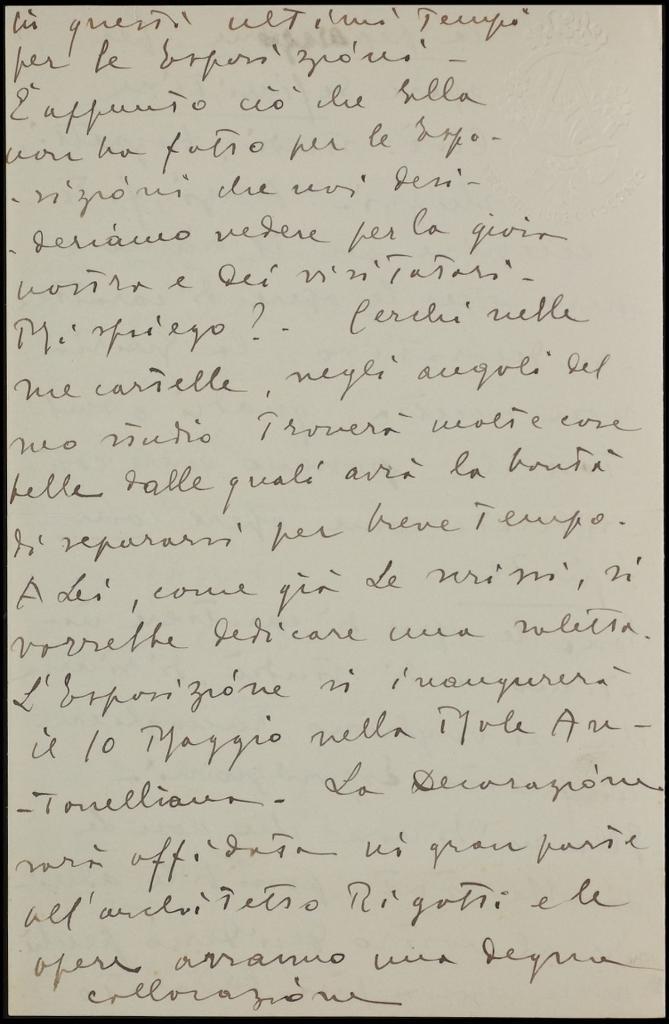 in questi ultimi Tempi
per le Esposizioni -
È appunto ciò che Ella
non ha fatto per le Espo-
- sizioni che noi desi-
- deriamo vedere per la gioia
nostra e dei visitatori -
Mi spiego? - Cerchi nelle
sue cartelle, negli angoli del
suo studio Troverà molte cose
belle dalle quali avrà la bontà
di separarsi per breve Tempo.
A Lei, come già Le scrissi, si
vorrebbe dedicare una saletta.
L'Esposizione si inaugurerà
il 10 Maggio nella Mole An-
- Tonelliana - La Decorazione
sarà affidata in gran parte
all'architetto Rigotti e le
opere avranno una degna
collocazione